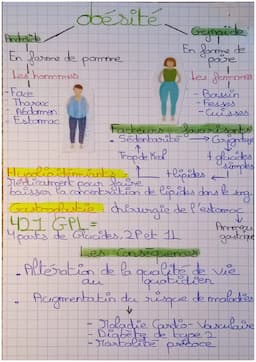 obésité
Androïde
Gynoïde
En forme de pomme
En forme de poire
Les hommes
Les femmes
- Face
- Thorax
- Abdomen
- Estomac
- Bassin
- Fesses
- Cuisses
Facteurs favorisants
- Sédentarité
Trop de Kcal
+ lipides
+ glucides simples
Hypolipémiants
Médicament pour faire
baisser la concentration de lipides dans le sang
Gastroplastie : chirurgie de l'estomac
421 GPL =
4 parts de Glucides, 2P et 1L
Anneau gastrique
Les Conséquences
- Altération de la qualité de vie
au quotidien
- Augmentation du risque de maladies
- Maladie Cardio-Vasculaire
- Diabète de type 2
- Mortalité précoce